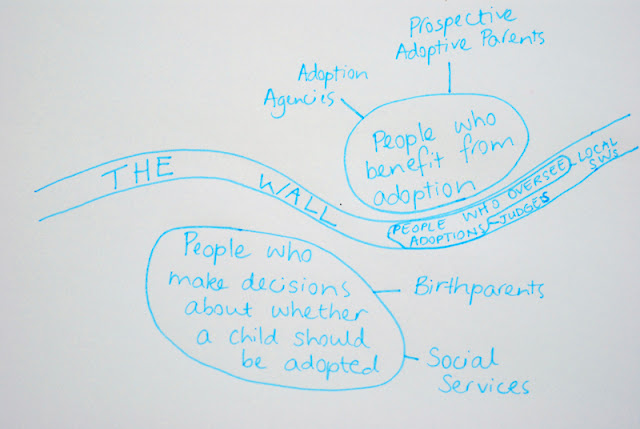 Prospective
Adoptive Parents
Adoption
Agencies
People who
benefit from
adoption
THE WALL
PEOPLE WHO OVERSEE
ADOPTIONS
JUDGES
LOCAL
SWS
People who
make decisions
about whether
a child should
be adopted
Birthparents
Social
Services